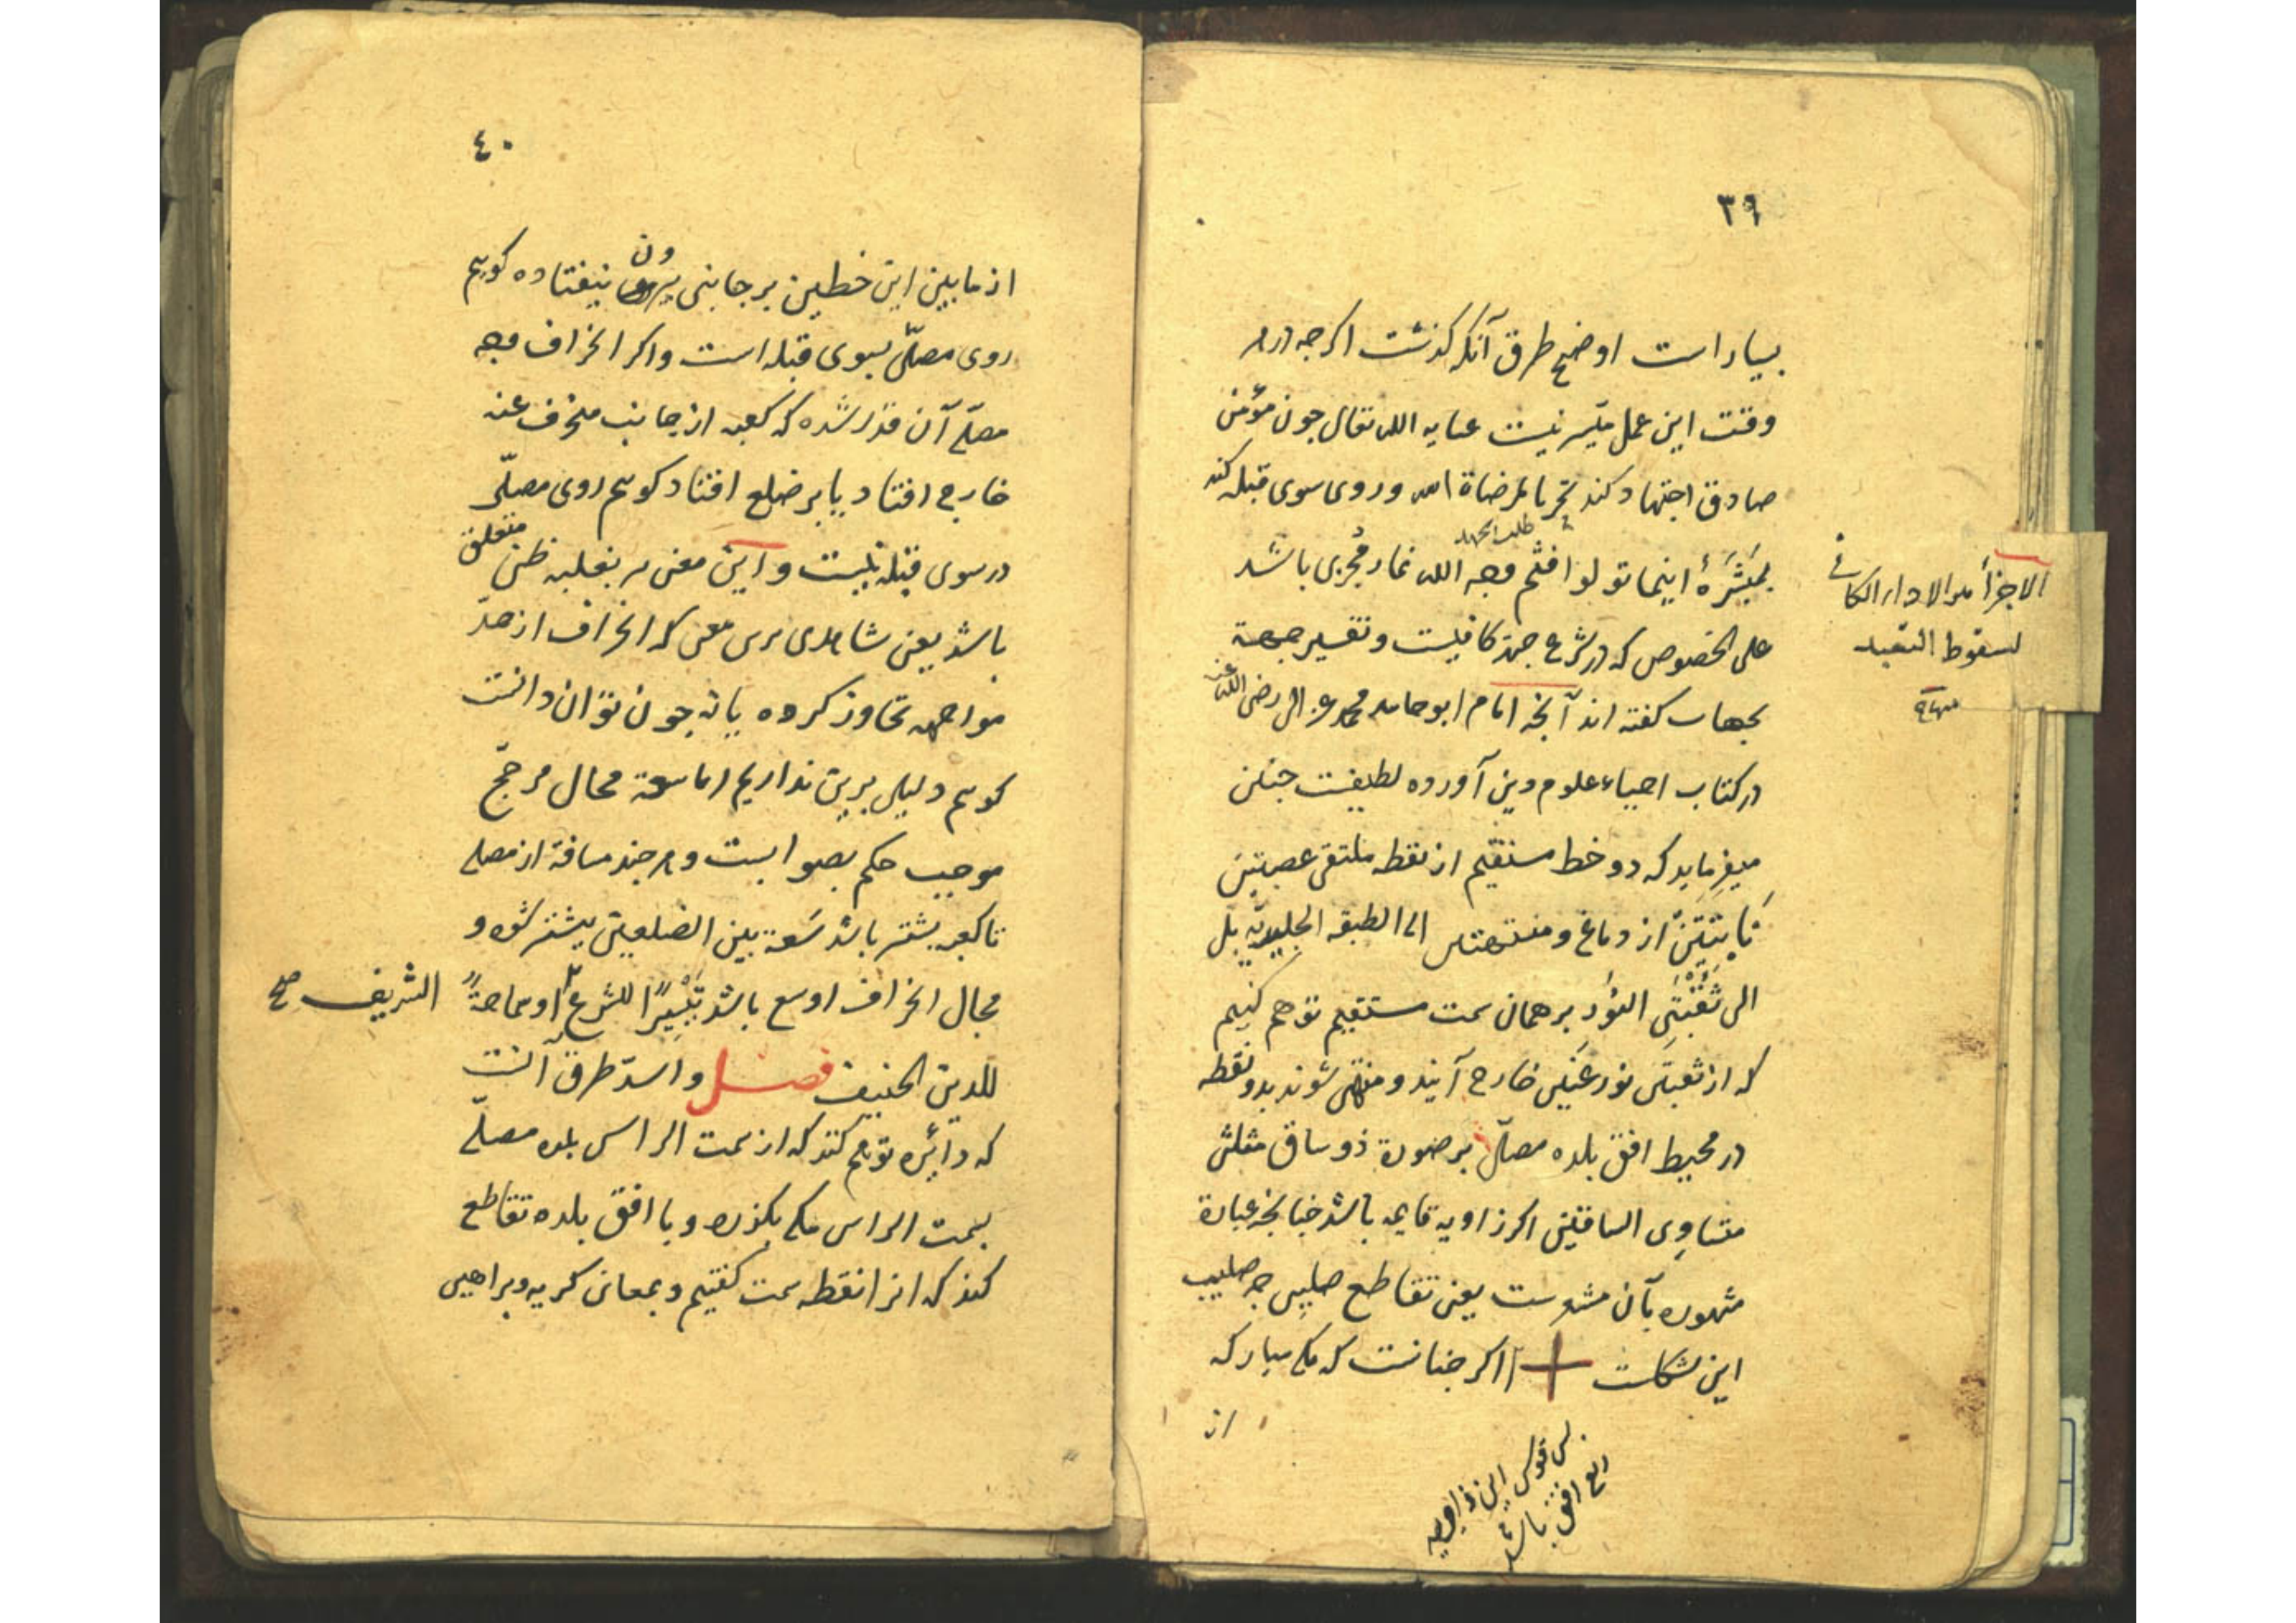 ۳۹
بسیار است اوضح طرق آنکه کذشت اکرچه در هر
وقت این عمل میسّر نیست عنایه الله تعالی جون مؤمن
صادق اجتهاد کند تحریا لمرضاة الله و روی سوی قبله کند
طلب الجهد
بمَبَشَّرَهٔ اینما تولوا فثم وجه الله نماز مُجزی باشد
علی الخصوص که در شرع جهة کافیست و تفسیر جهة
بجهات کفته اند آنجه امام ابوحامد محمد غزالی رضی الله عنه
در کتاب احیاء علوم دین آورده لطیفست جنین
میفرماید که دو خط مستقیم از نقطه ملتقی عصبتین
نابتتین از دماغ و منتهتین الی الطبقه الجلیدیّه بل
الی ثُقْبَتَی النُّور بر همان سمت مستقیم توهم کنیم
که از ثقبتی نور عَینَین خارج آیند و منتهی شوند بدو نقطه
در محیط افق بلده مصلّی بر صورة ذو ساق مثلث
متساوی الساقین اکر زاویه قایمه باشد جنانجه عبارة
مشهوره بآن مشعرست یعنی تقاطع صلیبی جه صلیب
این شکلست + اکر جنانست که مکه مبارکه
از
پس قوس این زاویه
ربع افق باشد
الاجزأ هو الاداء الکافی
لسقوط التعبد
منه
۴۰
از ما بین این خطین بر جانبی بیرون نیفتاده کوییم
روی مصلّی بسوی قبله است و اکر انحراف وجه
مصلّی آن قدر شده که کعبه از جانب منحرف عنه
خارج افتاد یا بر ضلع افتاد کوییم روی مصلّی
در سوی قبله نیست و این معنی بغلبه ظن متعلق
باشد یعنی شاهدی برین معنی که انحراف از حدّ
مواجهه تجاوز کرده یا نه جون توان دانست
کوییم دلیلی برین نداریم اما سعة مجال مرجّح
موجب حکم بصوابست و هر جند مسافة از مصلی
تا کعبه بیشتر باشد سَعة بین الضلعین بیشتر شود و
مجال انحراف اوسع باشد تَیْسِیرًا للشرع و سماحةً
الشریف صح
للدین الحنیف فصل و اسدّ طرق آنست
که دائره توهم کنند که از سمت الراس بلده مصلّی
بسمت الراس مکه بکذرد و با افق بلده تقاطع
کند که انرا نقطه سمت کفتیم و بمعانی کریه و براهین